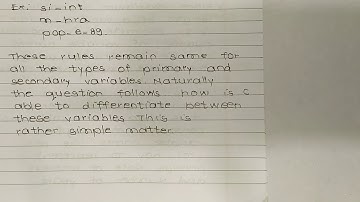 Ex: si-int
m-hra
pop-e-89
These rules remain same for
all the types of primary and
secondary variables Naturally
the question follows how is C
able to differentiate between
these variables This is
rather simple matter